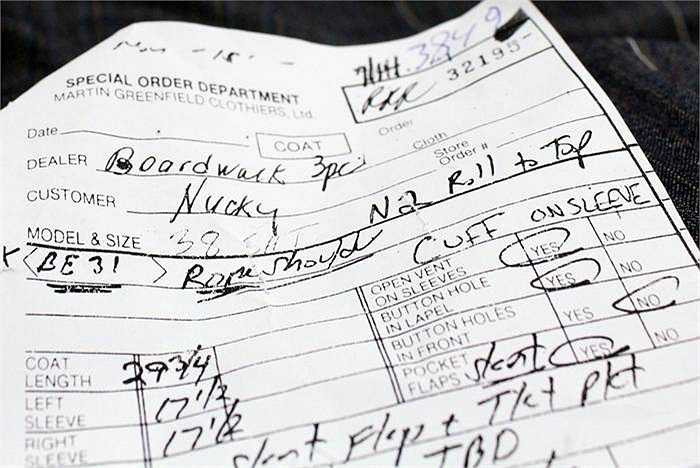 3849
SPECIAL ORDER DEPARTMENT
MARTIN GREENFIELD CLOTHIERS, Ltd.
RXR 32195-
Date
COAT
Order
Cloth
DEALER Boardwalk 3pc
Store
Order #
CUSTOMER Nucky
No 2 Roll to Top
MODEL & SIZE 38
BE31 Rope Should
CUFF ON SLEEVE
OPEN VENT
ON SLEEVES YES NO
BUTTON HOLE
IN LAPEL YES NO
BUTTON HOLES
IN FRONT YES NO
POCKET
FLAPS slant YES NO
COAT
LENGTH 29 3/4
LEFT
SLEEVE 17 1/2
RIGHT
SLEEVE 17 1/2
slant Flaps + Tkt Pkt
TBD